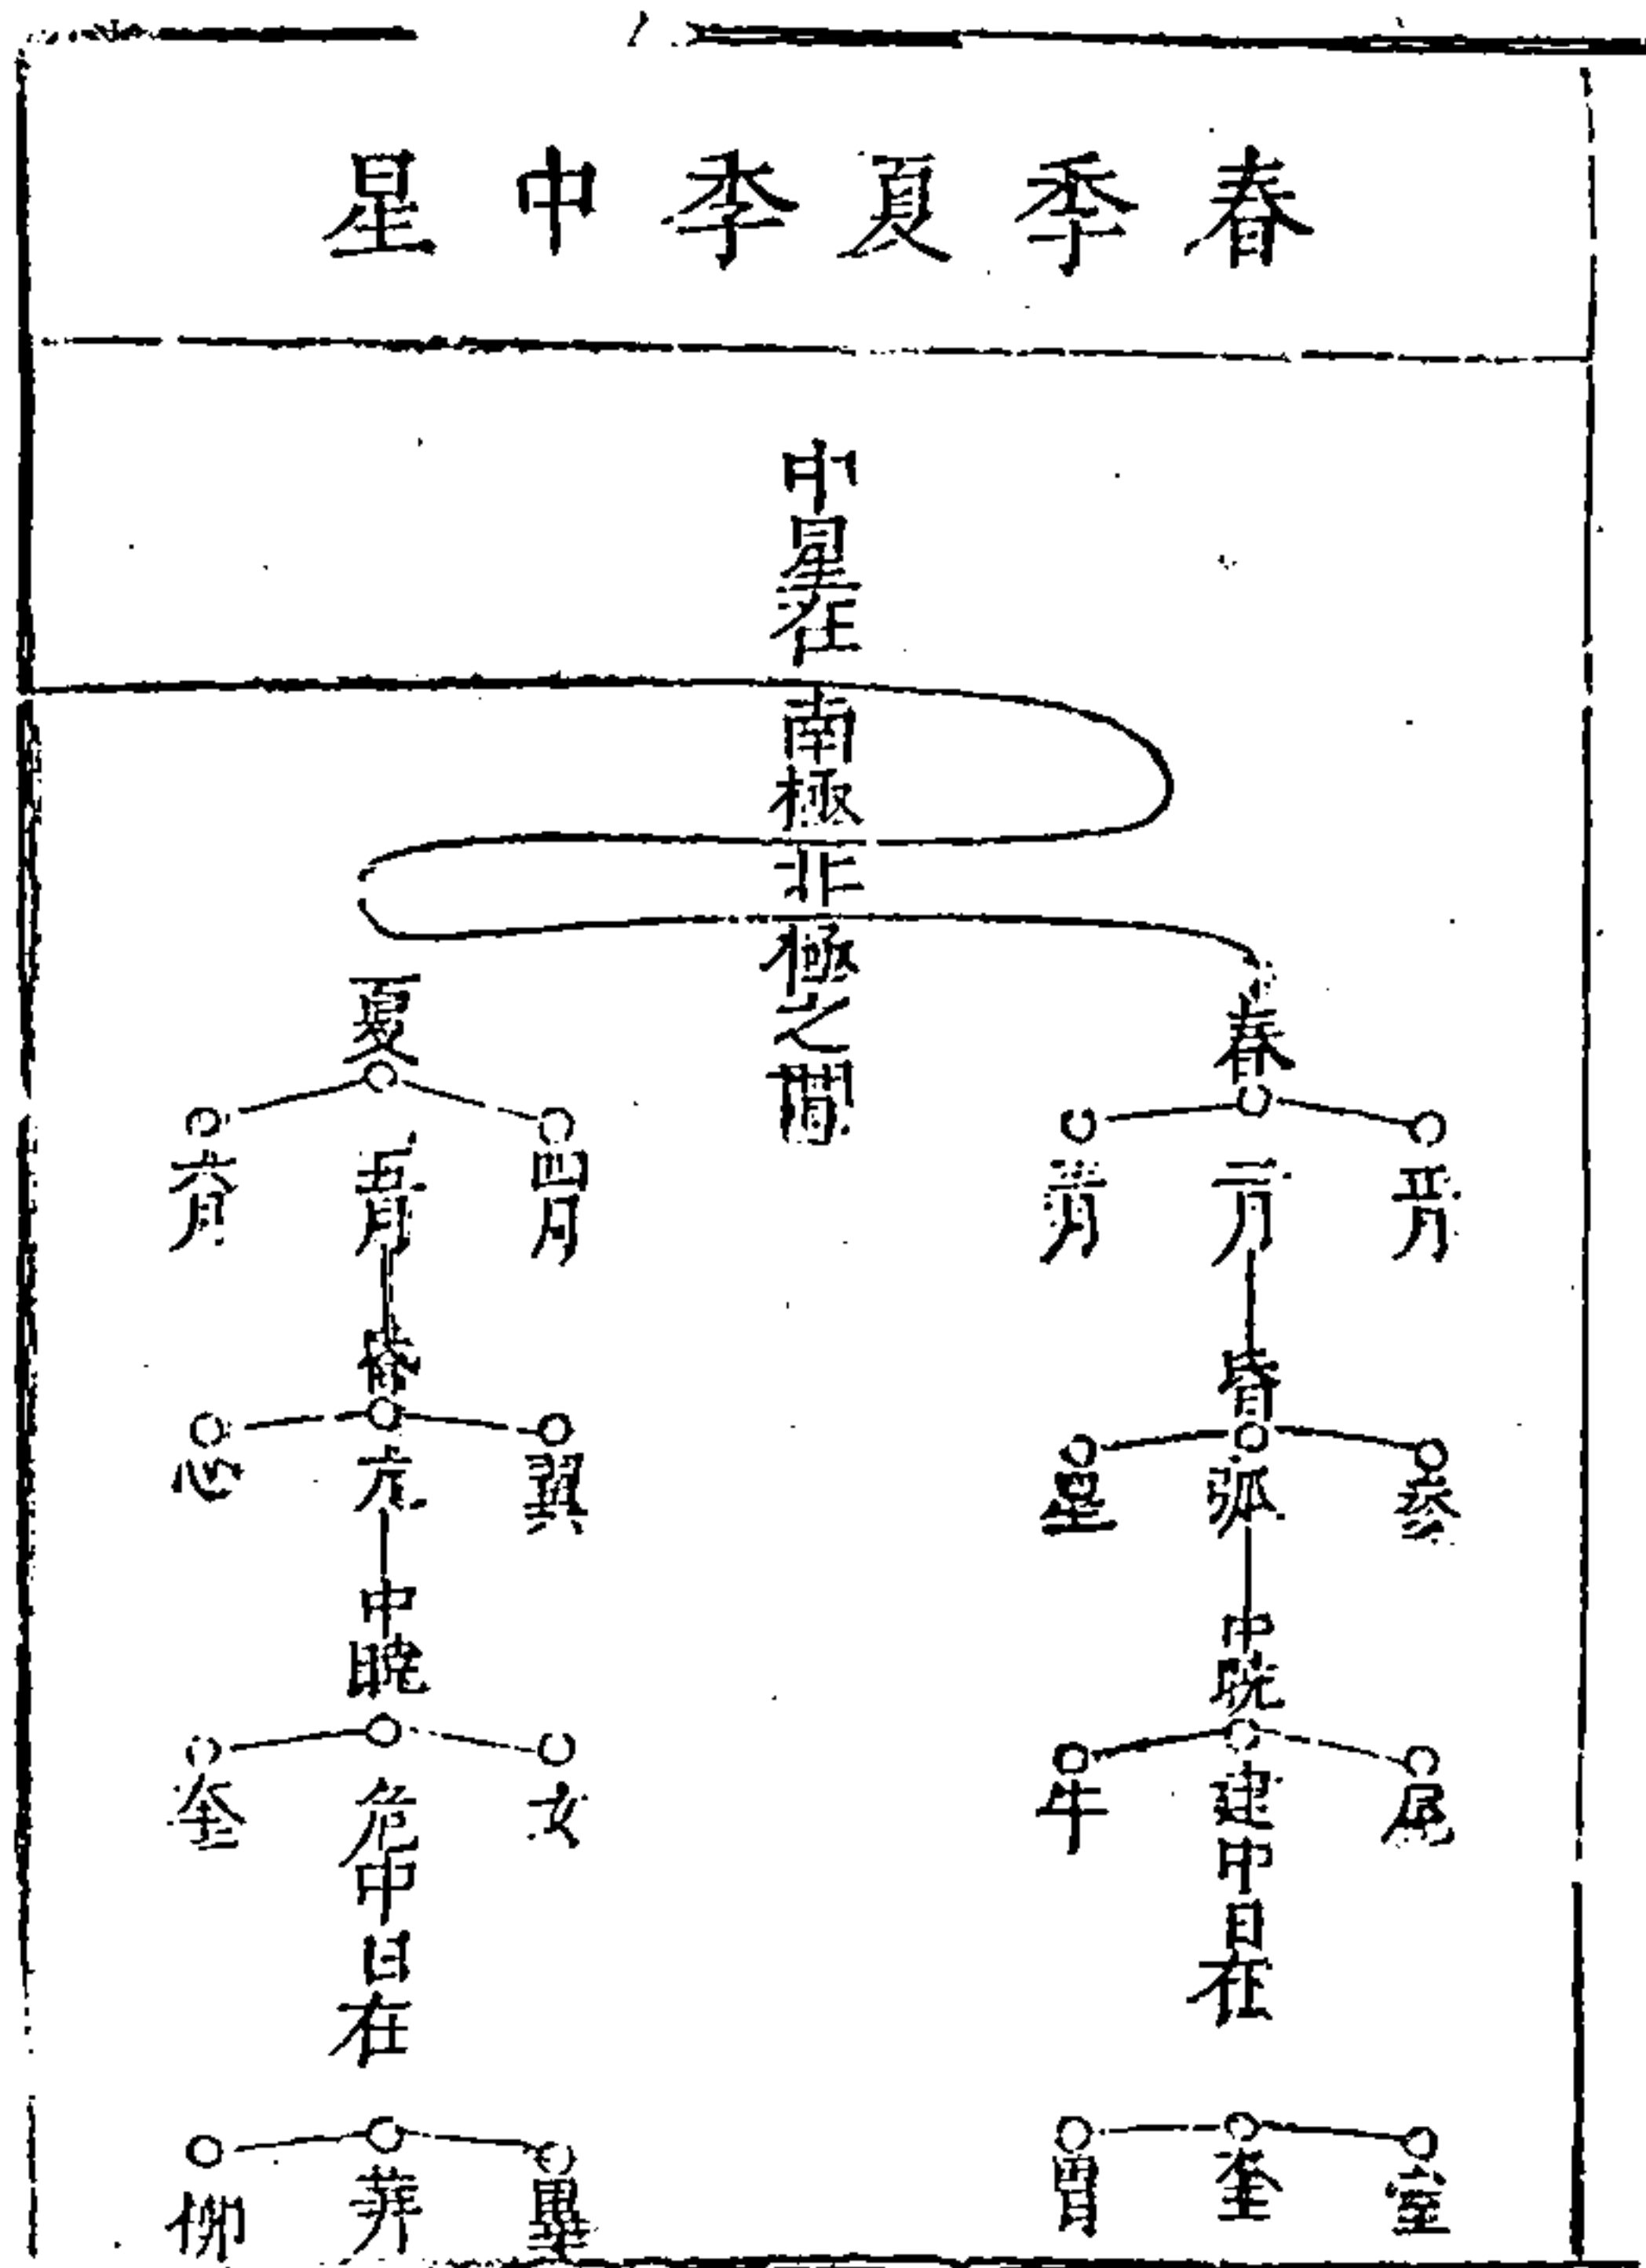 春季夏季中星
中星在南極北極之間
春
正月
二月
三月
昏
參
弧
星
中曉
尾
建
牛
中日在
室
奎
胃
夏
四月
五月
六月
昏
翼
亢
心
中曉
女
危
奎
中日在
畢
井
柳